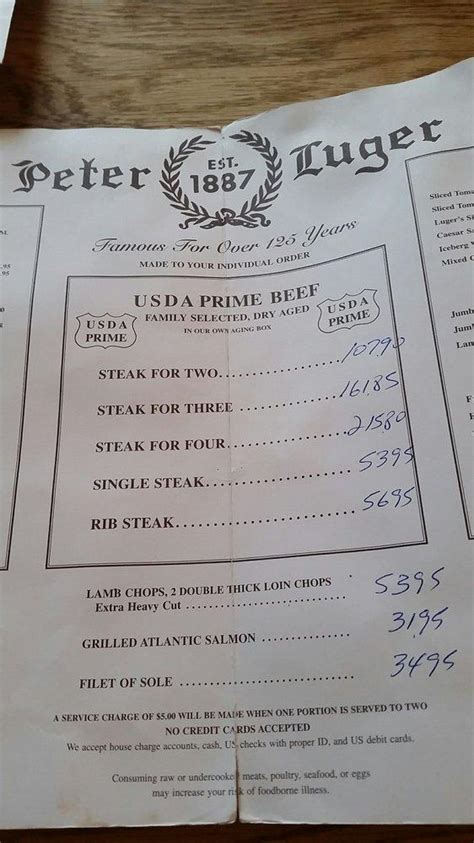 Peter EST. 1887 Luger
Famous For Over 125 Years
MADE TO YOUR INDIVIDUAL ORDER
USDA PRIME BEEF
FAMILY SELECTED, DRY AGED
IN OUR OWN AGING BOX
USDA PRIME
USDA PRIME
STEAK FOR TWO 107.90
STEAK FOR THREE 161.85
STEAK FOR FOUR 215.80
SINGLE STEAK 5395
RIB STEAK 5695
LAMB CHOPS, 2 DOUBLE THICK LOIN CHOPS
Extra Heavy Cut 5395
GRILLED ATLANTIC SALMON 3195
FILET OF SOLE 3495
A SERVICE CHARGE OF $5.00 WILL BE MADE WHEN ONE PORTION IS SERVED TO TWO
NO CREDIT CARDS ACCEPTED
We accept house charge accounts, cash, US checks with proper ID, and US debit cards.
Consuming raw or undercooked meats, poultry, seafood, or eggs
may increase your risk of foodborne illness.
Sliced
Sliced
Luger's
Caesar
Iceberg
Mixed